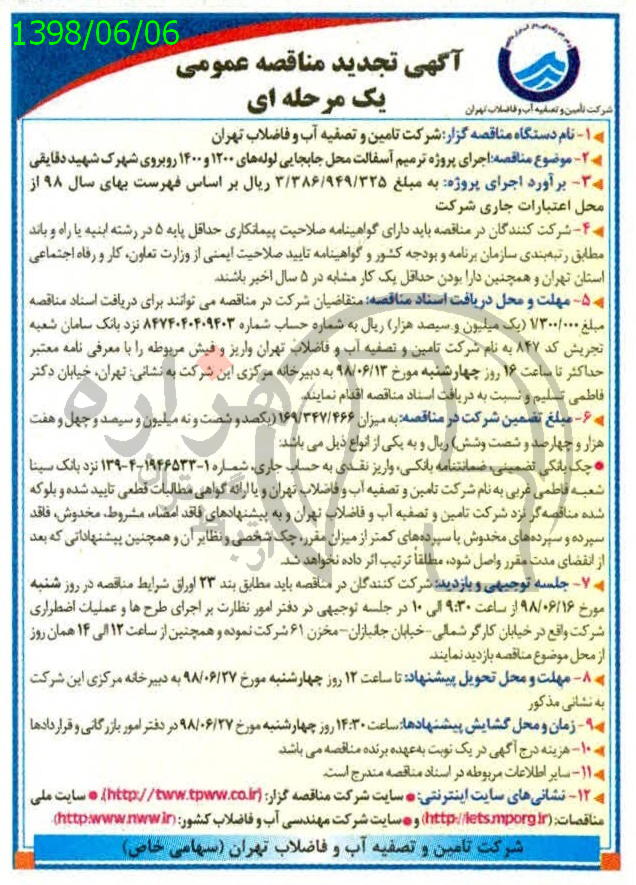 1398/06/06
آگهی تجدید مناقصه عمومی
یک مرحله ای
شرکت تأمین و تصفیه آب و فاضلاب تهران
۱- نام دستگاه مناقصه گزار: شرکت تامین و تصفیه آب و فاضلاب تهران
۲- موضوع مناقصه: اجرای پروژه ترمیم آسفالت محل جابجایی لوله‌های ۱۲۰۰ و ۱۴۰۰ روبروی شهرک شهید دقایقی
۳- برآورد اجرای پروژه: به مبلغ ۳/۳۸۶/۹۴۹/۳۲۵ ریال بر اساس فهرست بهای سال ۹۸ از
محل اعتبارات جاری شرکت
۴- شرکت کنندگان در مناقصه باید دارای گواهینامه صلاحیت پیمانکاری حداقل پایه ۵ در رشته ابنیه یا راه و باند
مطابق رتبه‌بندی سازمان برنامه و بودجه کشور و گواهینامه تایید صلاحیت ایمنی از وزارت تعاون، کار و رفاه اجتماعی
استان تهران و همچنین دارا بودن حداقل یک کار مشابه در ۵ سال اخیر باشند.
۵- مهلت و محل دریافت اسناد مناقصه: متقاضیان شرکت در مناقصه می توانند برای دریافت اسناد مناقصه
مبلغ ۱/۳۰۰/۰۰۰ (یک میلیون و سیصد هزار) ریال به شماره حساب شماره ۸۴۷۴۰۴۰۴۰۹۴۰۳ نزد بانک سامان شعبه
تجریش کد ۸۴۷ به نام شرکت تامین و تصفیه آب و فاضلاب تهران واریز و فیش مربوطه را با معرفی نامه معتبر
حداکثر تا ساعت ۱۶ روز چهارشنبه مورخ ۹۸/۰۶/۱۳ به دبیرخانه مرکزی این شرکت به نشانی: تهران، خیابان دکتر
فاطمی تسلیم و نسبت به دریافت اسناد مناقصه اقدام نمایند.
۶- مبلغ تضمین شرکت در مناقصه: به میزان ۱۶۹/۳۴۷/۴۶۶ (یکصد و شصت و نه میلیون و سیصد و چهل و هفت
هزار و چهارصد و شصت وشش) ریال و به یکی از انواع ذیل می باشد:
● چک بانکی تضمینی، ضمانتنامه بانکی، واریز نقدی به حساب جاری، شماره ۱-۱۹۴۶۵۳۳-۴-۱۳۹ نزد بانک سینا
شعبه فاطمی غربی به نام شرکت تامین و تصفیه آب و فاضلاب تهران و یا ارائه گواهی مطالبات قطعی تایید شده و بلوکه
شده مناقصه‌گر نزد شرکت تامین و تصفیه آب و فاضلاب تهران و به پیشنهادهای فاقد امضاء، مشروط، مخدوش، فاقد
سپرده و سپرده‌های مخدوش یا سپرده‌های کمتر از میزان مقرر، چک شخصی و نظایر آن و همچنین پیشنهاداتی که بعد
از انقضای مدت مقرر واصل شود، مطلقاً ترتیب اثر داده نخواهد شد.
۷- جلسه توجیهی و بازدید: شرکت کنندگان در مناقصه باید مطابق بند ۲۳ اوراق شرایط مناقصه در روز شنبه
مورخ ۹۸/۰۶/۱۶ از ساعت ۹:۳۰ الی ۱۰ در جلسه توجیهی در دفتر امور نظارت بر اجرای طرح ها و عملیات اضطراری
شرکت واقع در خیابان کارگر شمالی-خیابان جانبازان-مخزن ۶۱ شرکت نموده و همچنین از ساعت ۱۲ الی ۱۴ همان روز
از محل موضوع مناقصه بازدید نمایند.
۸- مهلت و محل تحویل پیشنهاد: تا ساعت ۱۲ روز چهارشنبه مورخ ۹۸/۰۶/۲۷ به دبیرخانه مرکزی این شرکت
به نشانی مذکور
۹- زمان و محل گشایش پیشنهادها: ساعت ۱۴:۳۰ روز چهارشنبه مورخ ۹۸/۰۶/۲۷ در دفتر امور بازرگانی و قراردادها
۱۰- هزینه درج آگهی در یک نوبت به‌عهده برنده مناقصه می باشد.
۱۱- سایر اطلاعات مربوطه در اسناد مناقصه مندرج است.
۱۲- نشانی‌های سایت اینترنتی: ● سایت شرکت مناقصه گزار: (http://tww.tpww.co.ir). ● سایت ملی
مناقصات: (http://iets.mporg.ir) و ● سایت شرکت مهندسی آب و فاضلاب کشور: (http:www.nww.ir)
شرکت تامین و تصفیه آب و فاضلاب تهران (سهامی خاص)
هزاره